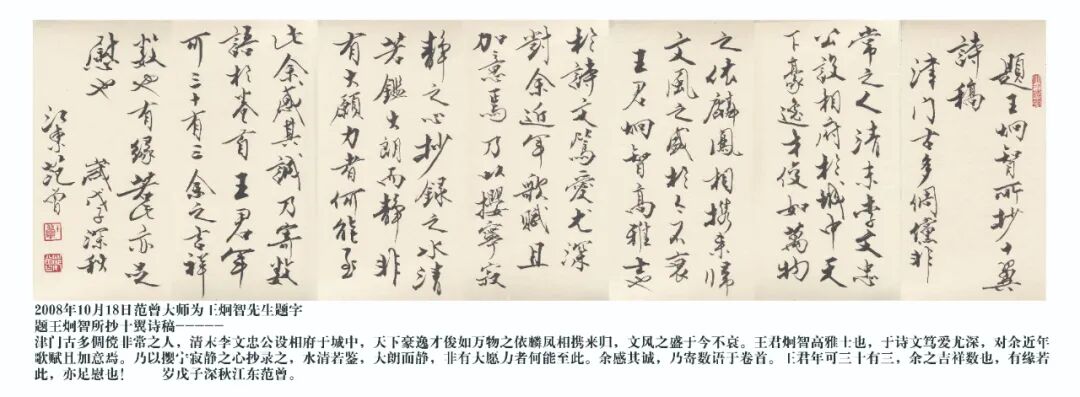 題王炯智所抄十翼
詩稿
津门古多倜儻非
常之人清末李文忠
公設相府於城中天
下豪逸才俊如萬物
之依麟鳳相携来歸
文風之盛於今不衰
王君炯智高雅士也
於詩文篤爱尤深
對余近年歌赋且
加意焉乃以攖寧寂
静之心抄録之水清
若鑑大朗而静非
有大願力者何能至
此余感其誠乃寄数
語於卷首王君年
可三十有三余之吉祥
数也有缘若此亦足
慰也 歲戊子深秋
江東范曾
2008年10月18日范曾大师为王炯智先生题字
题王炯智所抄十翼诗稿-----
津门古多倜傥非常之人，清末李文忠公设相府于城中，天下豪逸才俊如万物之依麟凤相携来归，文风之盛于今不衰。王君炯智高雅士也，于诗文笃爱尤深，对余近年
歌赋且加意焉。乃以撄宁寂静之心抄录之，水清若鉴，大朗而静，非有大愿力者何能至此。余感其诚，乃寄数语于卷首。王君年可三十有三，余之吉祥数也，有缘若
此，亦足慰也！ 岁戊子深秋江东范曾。